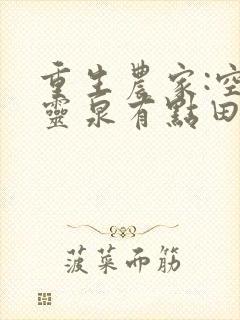 重生農家:空
靈泉有點田
菠菜面筋